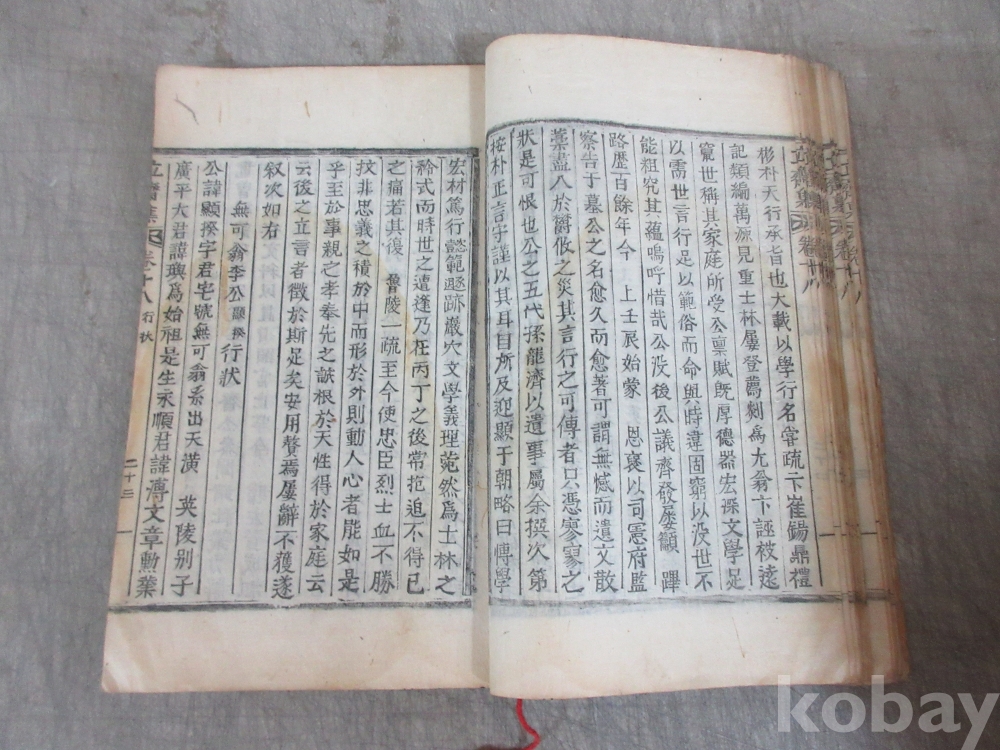 彬朴天行承旨也大載以學行名常疏卞崔錫鼎禮
記類編萬源見重士林屢登薦剡爲尤翁卞誣被遠
竄世稱其家庭所受公稟賦旣厚德器宏深文學足
以需世言行足以範俗而命與時違固窮以沒世不
能粗究其蘊嗚呼惜哉公沒後公議齊發屢籲 蹕
路歷百餘年今 上壬辰始蒙 恩褒以司憲府監
察告于墓公之名愈久而愈著可謂無憾而遺文散
藁盡入於爵攸之災其言行之可傳者只憑寥寥之
狀是可恨也公之五代孫龍濟以遺事屬余撰次第
按朴正言守謹以其耳目所及迎顯于朝略曰博學
宏材篤行懿範遯跡巖穴文學義理蔚然爲士林之
矜式而時世之遭逢乃在丙丁之後常抱追不得已
之痛若其復 魯陵一疏至今使忠臣烈士血不勝
抆非忠義之積於中而形於外則動人心者能如是
乎至於事親之孝奉先之誠根於天性得於家庭云
云後之立言者徵於斯足矣安用贅焉屢辭不獲遂
叙次如右
無可翁李公顯揆行狀
公諱顯揆字君宅號無可翁系出天潢 英陵别子
廣平大君諱璵爲始祖是生永順君諱溥文章勳業
立齋集 卷十八 行狀
二十三
立齋集 卷十八